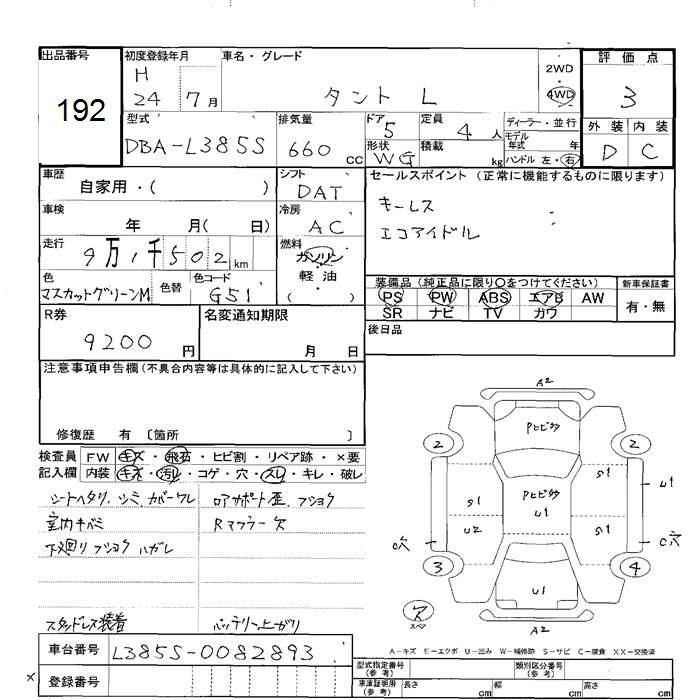 出品番号 初度登録年月 車名・グレード 2WD 評価点
192 H 24 7月 タント L 4WD 3
型式 排気量 ドア 定員 ディーラー・並行 外装 内装
DBA-L385S 660 CC 5 4 人 モデル年式 年 D C
形状 積載 ハンドル 左・右
WG kg
車歴 シフト セールスポイント (正常に機能するものに限ります)
自家用・( ) DAT キーレス
車検 冷房 エコアイドル
年 月( 日) AC
走行 燃料
9万1千502 km ガソリン
軽油
( )
色 色替 色コード 装備品 (純正品に限り○をつけてください) 新車保証書
マスカットグリーンM G51 PS PW ABS エアB AW 有・無
SR ナビ TV カワ
R券 名変通知期限 後日品
9200 円 月 日
注意事項申告欄 (不具合内容等は具体的に記入して下さい)
修復歴 有 〔箇所 〕
検査員 FW キズ・飛石・ヒビ割・リペア跡・×要
記入欄 内装 キズ・汚レ・コゲ・穴・スレ・キレ・破レ
シートヘタリ、シミ、カバーワレ ロアサポート歪、フショク
室内キバミ Rマフラー欠
下廻り フショク ハガレ
スタッドレス装着 バッテリー上がり
A2
Pヒビ多
2 2
S1 U1
Pヒビ多
U1
S1 U2 S1
C穴 C穴
3 4
U1
ス
スペア
A2
A-キズ E-エクボ U-凹み W-補修跡 S-サビ C-腐食 XX-交換済
車台番号 L385S-0082893
型式指定番号 (参考) 類別区分番号 (参考)
× 登録番号
車庫証明用 (参考) 長さ cm 幅 cm 高さ cm